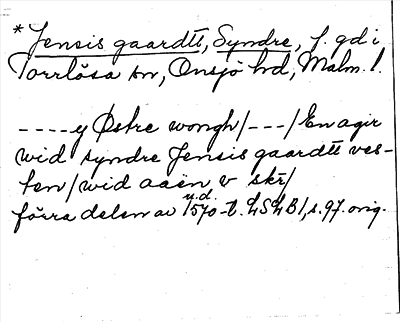 *Jensis gaardtt, Syndre, f. gd i
Torrlösa sn, Onsjö hd, Malm. l.
----y Østre wongh/---/En agir
wid syndre Jensis gaardtt ves-
ten/wid aaen v skr/
förra delen av u.d. 1570-t. LSLB1, s. 97. orig.